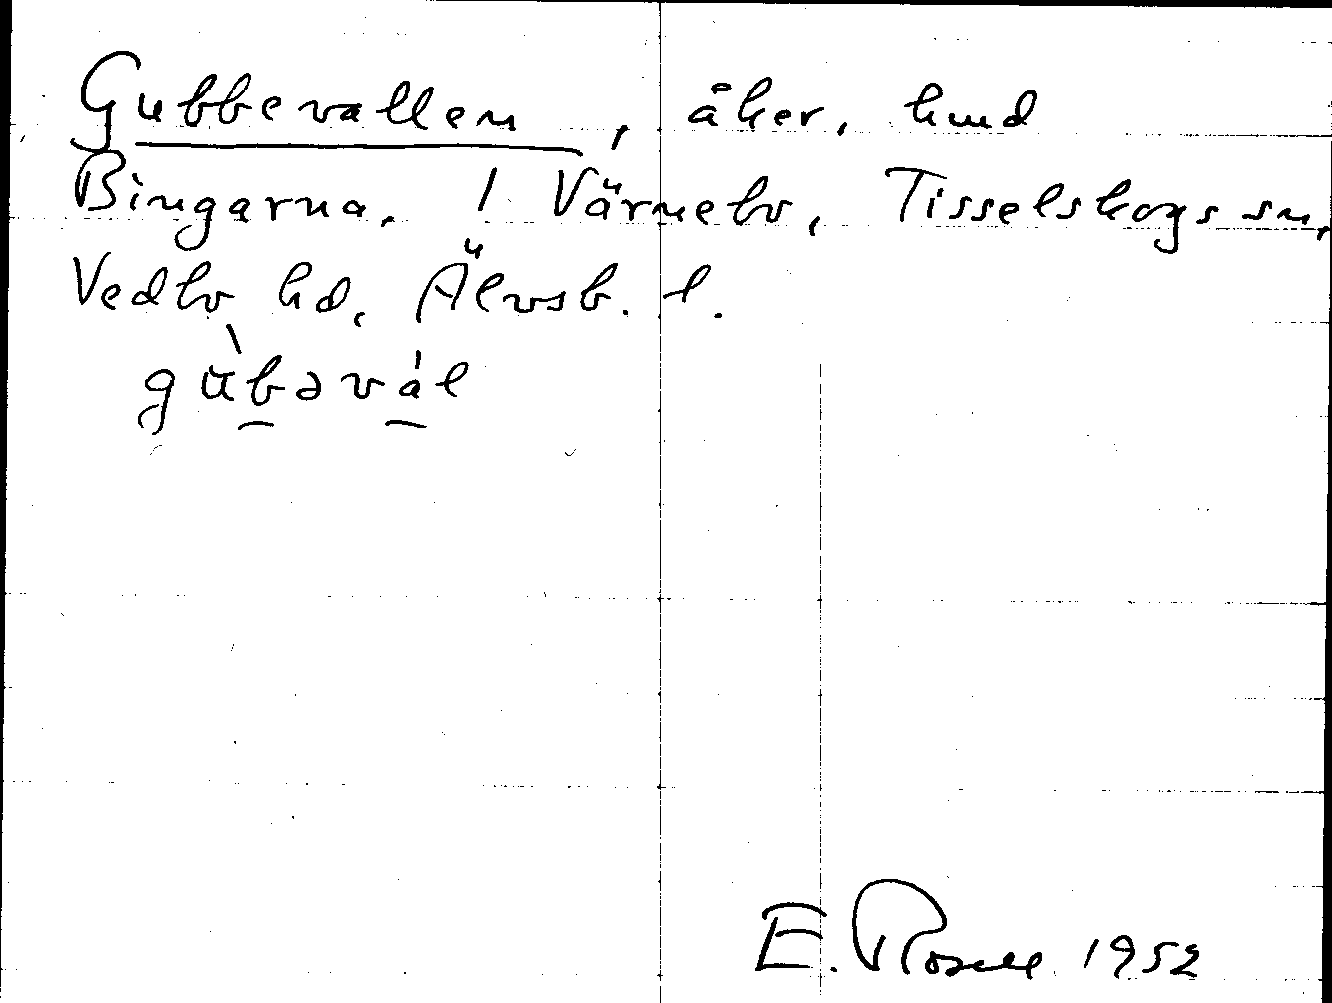 Gubbevallen, åker, hmd
Bingarna. 1 Värnebo, Tisselskogs sn,
Vedbo hd, Älvsb. l.
gùbəvál
E. Rosell 1952